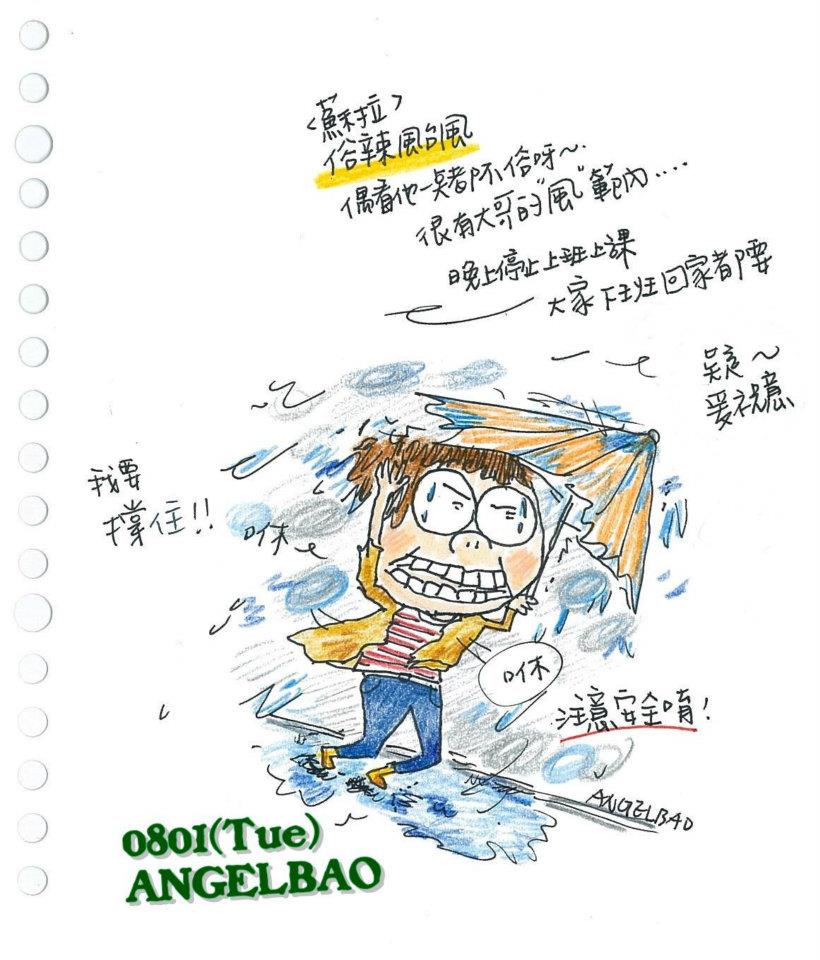 <蘇拉>
俗辣颱風
偶看他一點都不俗呀~
很有大哥的"風"範內....
晚上停止上班上課
大家下班回家都要
注意安全唷!
我要
撐住!!
咻
咻
ANGELBAO
0801(Tue)
ANGELBAO